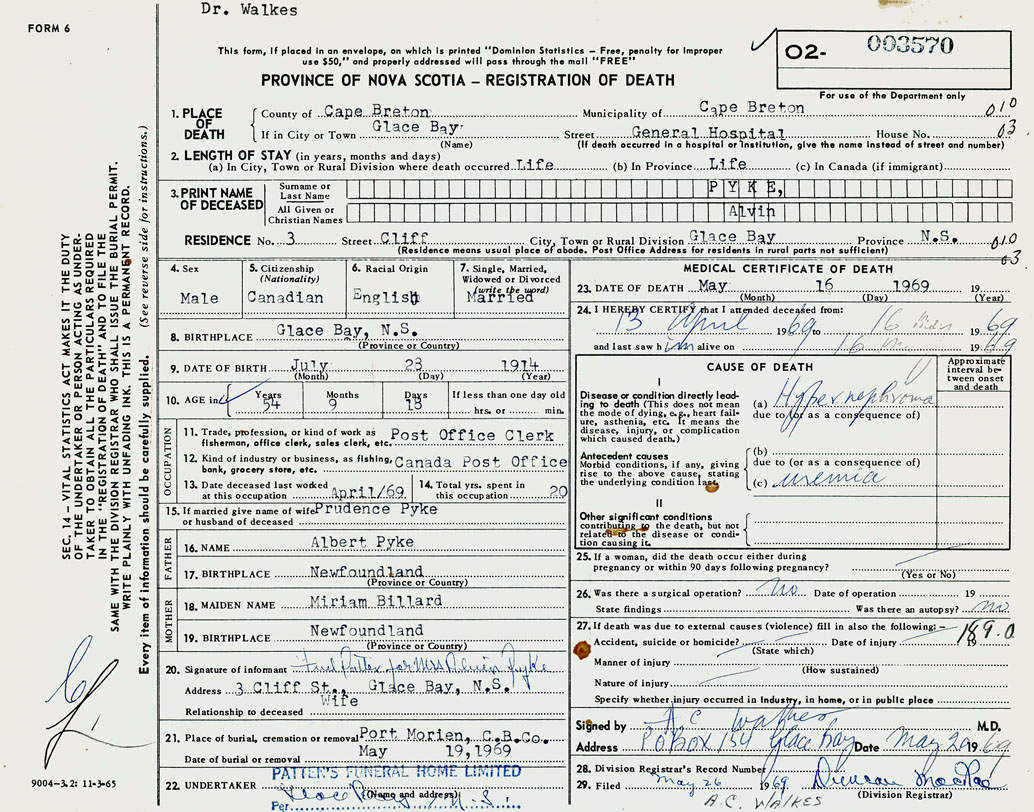 Dr. Walkes
FORM 6
This form, if placed in an envelope, on which is printed "Dominion Statistics – Free, penalty for improper
use $50," and properly addressed will pass through the mail "FREE"
PROVINCE OF NOVA SCOTIA – REGISTRATION OF DEATH
O2- 003570
For use of the Department only
1. PLACE OF DEATH
County of Cape Breton Municipality of Cape Breton 010
If in City or Town Glace Bay Street General Hospital House No. 03
(Name) (If death occurred in a hospital or institution, give the name instead of street and number)
2. LENGTH OF STAY (in years, months and days)
(a) In City, Town or Rural Division where death occurred Life (b) In Province Life (c) In Canada (if immigrant)
3. PRINT NAME OF DECEASED
Surname or Last Name PYKE,
All Given or Christian Names Alvin
RESIDENCE No. 3 Street Cliff City, Town or Rural Division Glace Bay Province N.S. 010
(Residence means usual place of abode. Post Office Address for residents in rural parts not sufficient) 03
4. Sex
Male
5. Citizenship
(Nationality)
Canadian
6. Racial Origin
English
7. Single, Married,
Widowed or Divorced
(write the word)
Married
8. BIRTHPLACE Glace Bay, N.S.
(Province or Country)
9. DATE OF BIRTH July 28 1914
(Month) (Day) (Year)
10. AGE in Years Months Days If less than one day old
54 9 18 hrs. or min.
OCCUPATION
11. Trade, profession, or kind of work as
fisherman, office clerk, sales clerk, etc. Post Office Clerk
12. Kind of industry or business, as fishing,
bank, grocery store, etc. Canada Post Office
13. Date deceased last worked
at this occupation April/69
14. Total yrs. spent in
this occupation 20
15. If married give name of wife
or husband of deceased Prudence Pyke
FATHER
16. NAME Albert Pyke
17. BIRTHPLACE Newfoundland
(Province or Country)
MOTHER
18. MAIDEN NAME Miriam Billard
19. BIRTHPLACE Newfoundland
(Province or Country)
20. Signature of informant for Mrs Pyke
Address 3 Cliff St., Glace Bay, N.S.
Relationship to deceased Wife
21. Place of burial, cremation or removal Port Morien, C.B.Co.
Date of burial or removal May 19, 1969
22. UNDERTAKER PATTEN'S FUNERAL HOME LIMITED
(Name and address) Glace Bay N.S.
Per
MEDICAL CERTIFICATE OF DEATH
23. DATE OF DEATH May 16 1969 19
(Month) (Day) (Year)
24. I HEREBY CERTIFY that I attended deceased from:
13 April 1969 to 16 May 1969
and last saw him alive on 16 1969
CAUSE OF DEATH
Approximate
interval be-
tween onset
and death
I
Disease or condition directly lead-
ing to death (This does not mean
the mode of dying, e.g., heart fail-
ure, asthenia, etc. It means the
disease, injury, or complication
which caused death.)
(a) Hypernephroma
due to (or as a consequence of)
Antecedent causes
Morbid conditions, if any, giving
rise to the above cause, stating
the underlying condition last.
(b)
due to (or as a consequence of)
(c) uremia
II
Other significant conditions
contributing to the death, but not
related to the disease or condi-
tion causing it.
25. If a woman, did the death occur either during
pregnancy or within 90 days following pregnancy?
(Yes or No)
26. Was there a surgical operation? no Date of operation 19
State findings Was there an autopsy? no
27. If death was due to external causes (violence) fill in also the following:– 189.0
Accident, suicide or homicide? Date of injury 19
(State which)
Manner of injury
(How sustained)
Nature of injury
Specify whether injury occurred in industry, in home, or in public place
Signed by A.C. Walkes M.D.
Address PO Box 154 Glace Bay Date May 20 1969
28. Division Registrar's Record Number
29. Filed May 26 1969 Duncan MacRae
(Division Registrar)
A.C. WALKES
SEC. 14 – VITAL STATISTICS ACT MAKES IT THE DUTY
OF THE UNDERTAKER OR PERSON ACTING AS UNDER-
TAKER TO OBTAIN ALL THE PARTICULARS REQUIRED
IN THE "REGISTRATION OF DEATH" AND TO FILE THE
SAME WITH THE DIVISION REGISTRAR WHO SHALL ISSUE THE BURIAL PERMIT.
WRITE PLAINLY WITH UNFADING INK. THIS IS A PERMANENT RECORD.
Every item of information should be carefully supplied. (See reverse side for instructions.)
9004–3.2: 11-3-65